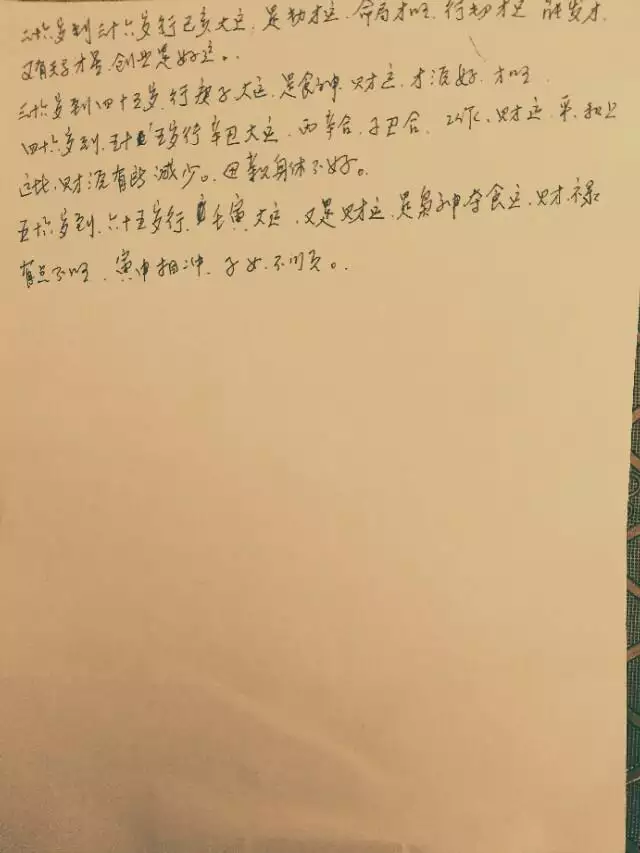 二十六岁到三十六岁行己亥大运，是劫才运，命局才旺，行劫才运 能发才
又有天才星，创业是好运。
三十六岁到四十五岁，行庚子大运，是食神 财运，才源好，才旺
四十六岁到，五十五岁行辛丑大运，丙辛合，子丑合，财运，平，和上
这比，财源有所减少。母亲身体不好。
五十六岁到，六十五岁行，壬寅大运，又是财运，是枭神夺食运，财禄
有点不旺，寅申相冲，子女不顺。